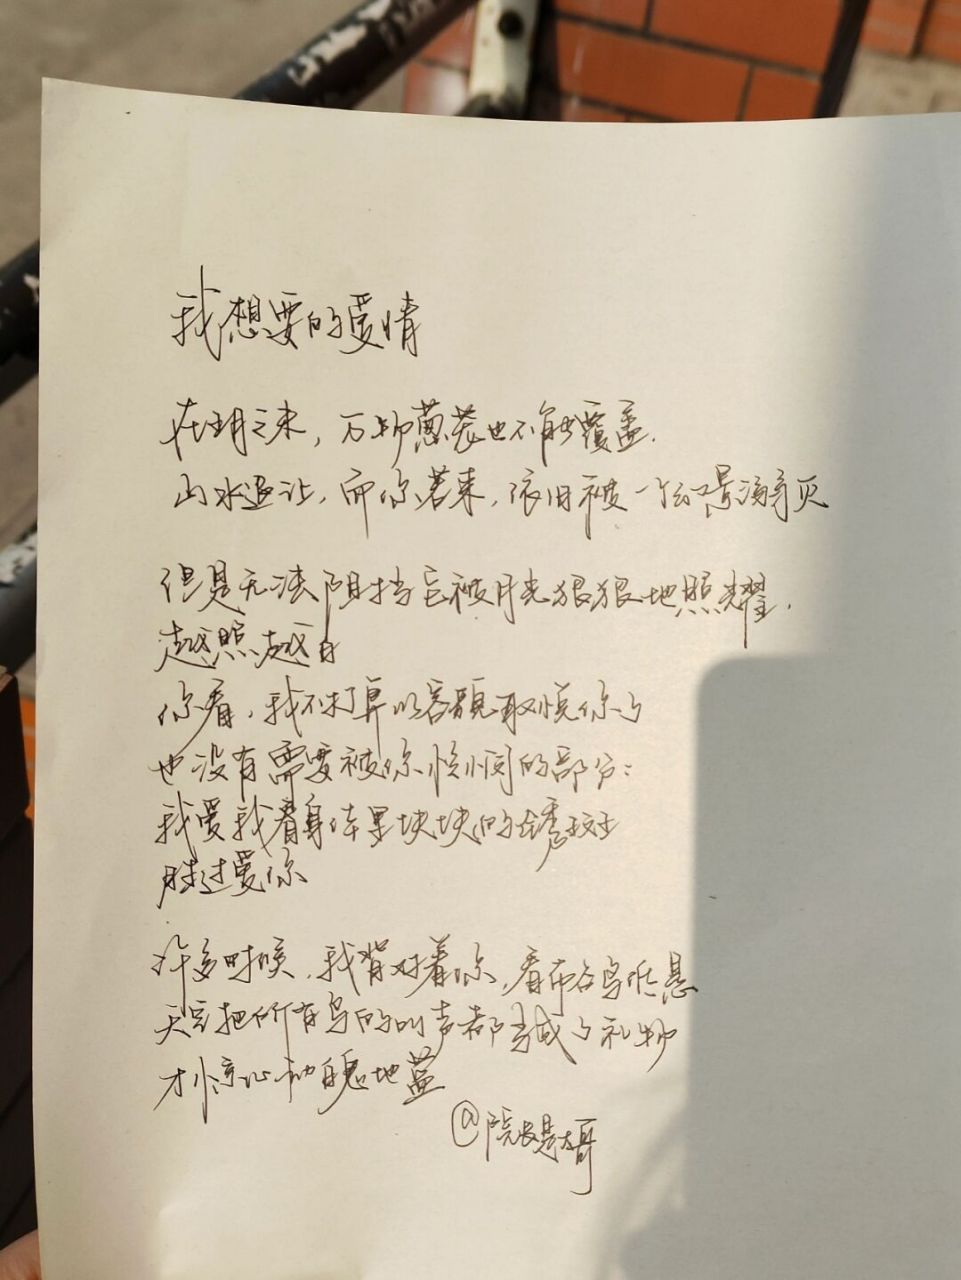 我想要的爱情
在明之未，万物葱茏也不能覆盖.
山水退让，而你若来，依旧被一个幻景消灭
但是无法阻挡它被月光狠狠地照耀，
越照越白
你看，我不打算以容颜取悦你了
也没有需要被你怜悯的部分：
我爱我着身体里块块的锈斑
胜过爱你
许多时候，我背对着你，看布谷鸟低悬
天空把所有鸟的叫声都当成了礼物
才惊心动魄地蓝
@院长是大哥